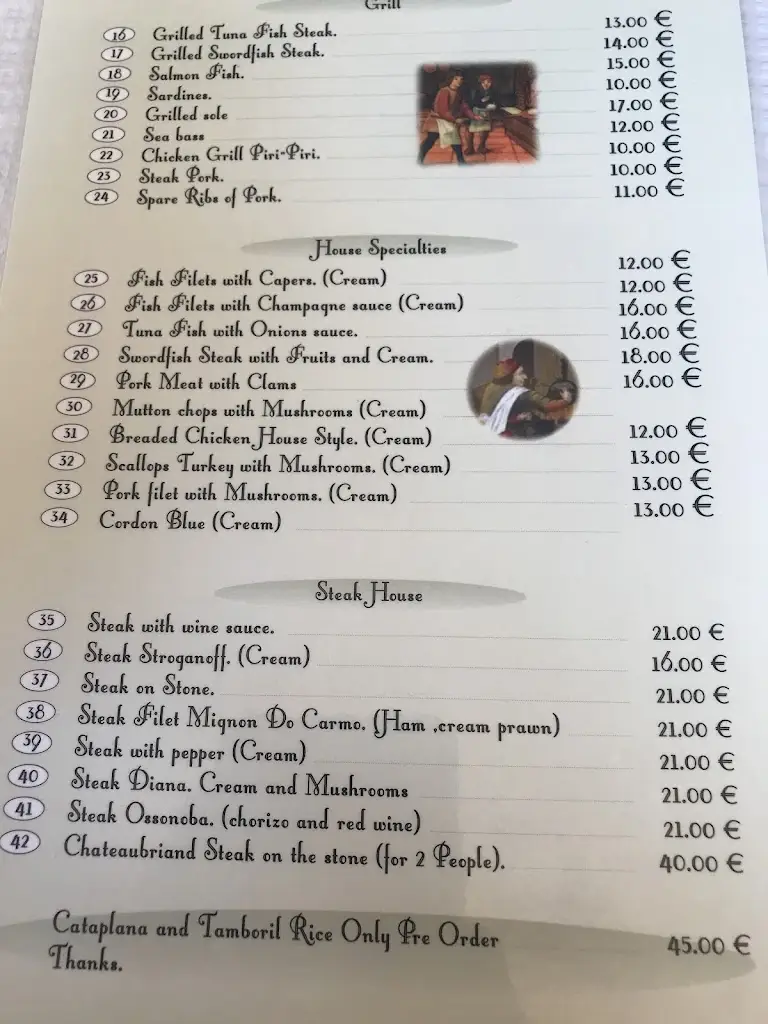 Grill
16 Grilled Tuna Fish Steak. 13.00 €
17 Grilled Swordfish Steak. 14.00 €
18 Salmon Fish. 15.00 €
19 Sardines. 10.00 €
20 Grilled sole 17.00 €
21 Sea bass 12.00 €
22 Chicken Grill Piri-Piri. 10.00 €
23 Steak Pork. 10.00 €
24 Spare Ribs of Pork. 11.00 €
House Specialties
25 Fish Filets with Capers. (Cream) 12.00 €
26 Fish Filets with Champagne sauce (Cream) 12.00 €
27 Tuna Fish with Onions sauce. 16.00 €
28 Swordfish Steak with Fruits and Cream. 16.00 €
29 Pork Meat with Clams 18.00 €
30 Mutton chops with Mushrooms (Cream) 16.00 €
31 Breaded Chicken House Style. (Cream) 12.00 €
32 Scallops Turkey with Mushrooms. (Cream) 13.00 €
33 Pork filet with Mushrooms. (Cream) 13.00 €
34 Cordon Blue (Cream) 13.00 €
Steak House
35 Steak with wine sauce. 21.00 €
36 Steak Stroganoff. (Cream) 16.00 €
37 Steak on Stone. 21.00 €
38 Steak Filet Mignon Do Carmo. (Ham ,cream prawn) 21.00 €
39 Steak with pepper (Cream) 21.00 €
40 Steak Diana. Cream and Mushrooms 21.00 €
41 Steak Ossonoba. (chorizo and red wine) 21.00 €
42 Chateaubriand Steak on the stone (for 2 People). 40.00 €
Cataplana and Tamboril Rice Only Pre Order 45.00 €
Thanks.